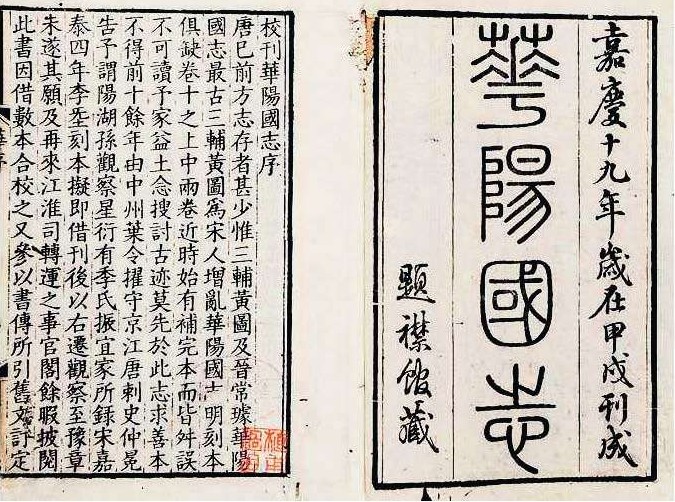 嘉慶十九年歲在甲戌刊成
華陽國志
題襟館藏
校刊華陽國志序
唐已前方志存者甚少惟三輔黃圖及晉常璩華陽
國志最古三輔黃圖爲宋人增亂華陽國志明刻本
俱缺卷十之上中兩卷近時始有補完本而皆舛誤
不可讀予家益土念搜討古迹莫先於此志求善本
不得前十餘年由中州葉令擢守京江唐刺史仲冕
告予謂陽湖孫觀察星衍有季氏振宜家所錄宋嘉
泰四年李㙜刻本擬即借刊後以右遷觀察至豫章
未遂其願及再來江淮司轉運之事官閣餘暇披閱
此書因借數本合校之又參以書傳所引舊文訂定